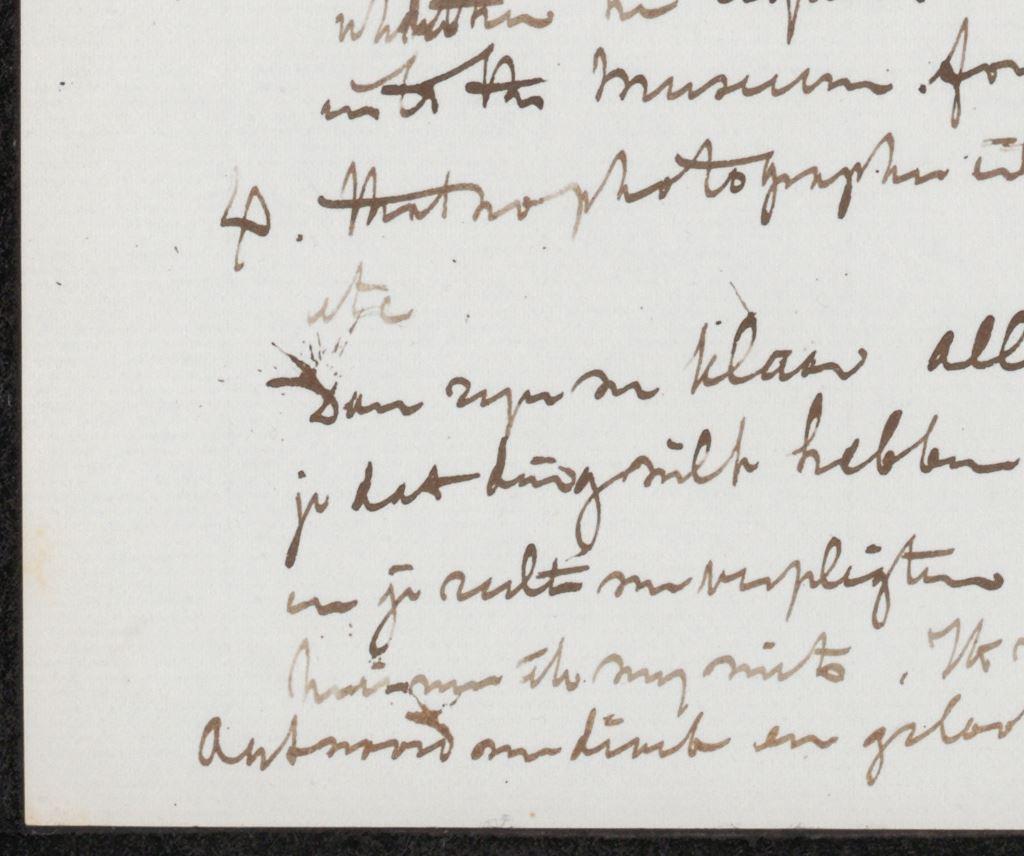 whether he
into the Museum. for
4. Wat no photographie
etc
Dan zijn we klaar all
je dat ding wilt hebben
en je zult me verpligten
hierme niets. Ik
Antwoord me direct en geloo